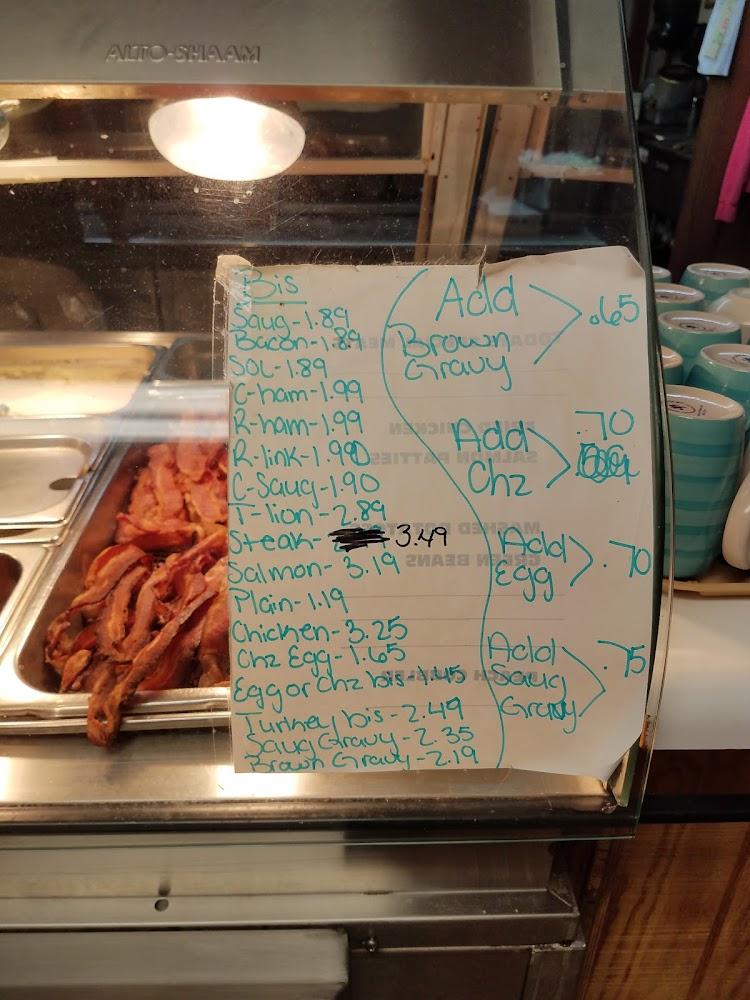 ALTO-SHAAM
Bis
Saug-1.89
Bacon-1.89
SOL-1.89
C-ham-1.99
R-ham-1.99
R-link-1.90
C-Saug-1.90
T-lion-2.89
Steak- 3.49
Salmon-3.19
Plain-1.19
Chicken-3.25
Chz Egg-1.65
Egg or Chz bis-1.45
Turkey bis-2.49
Saug Gravy-2.35
Brown Gravy-2.19
Add .65
Brown
Gravy
Add .70
Chz
Add .70
Egg
Add .75
Saug
Gravy